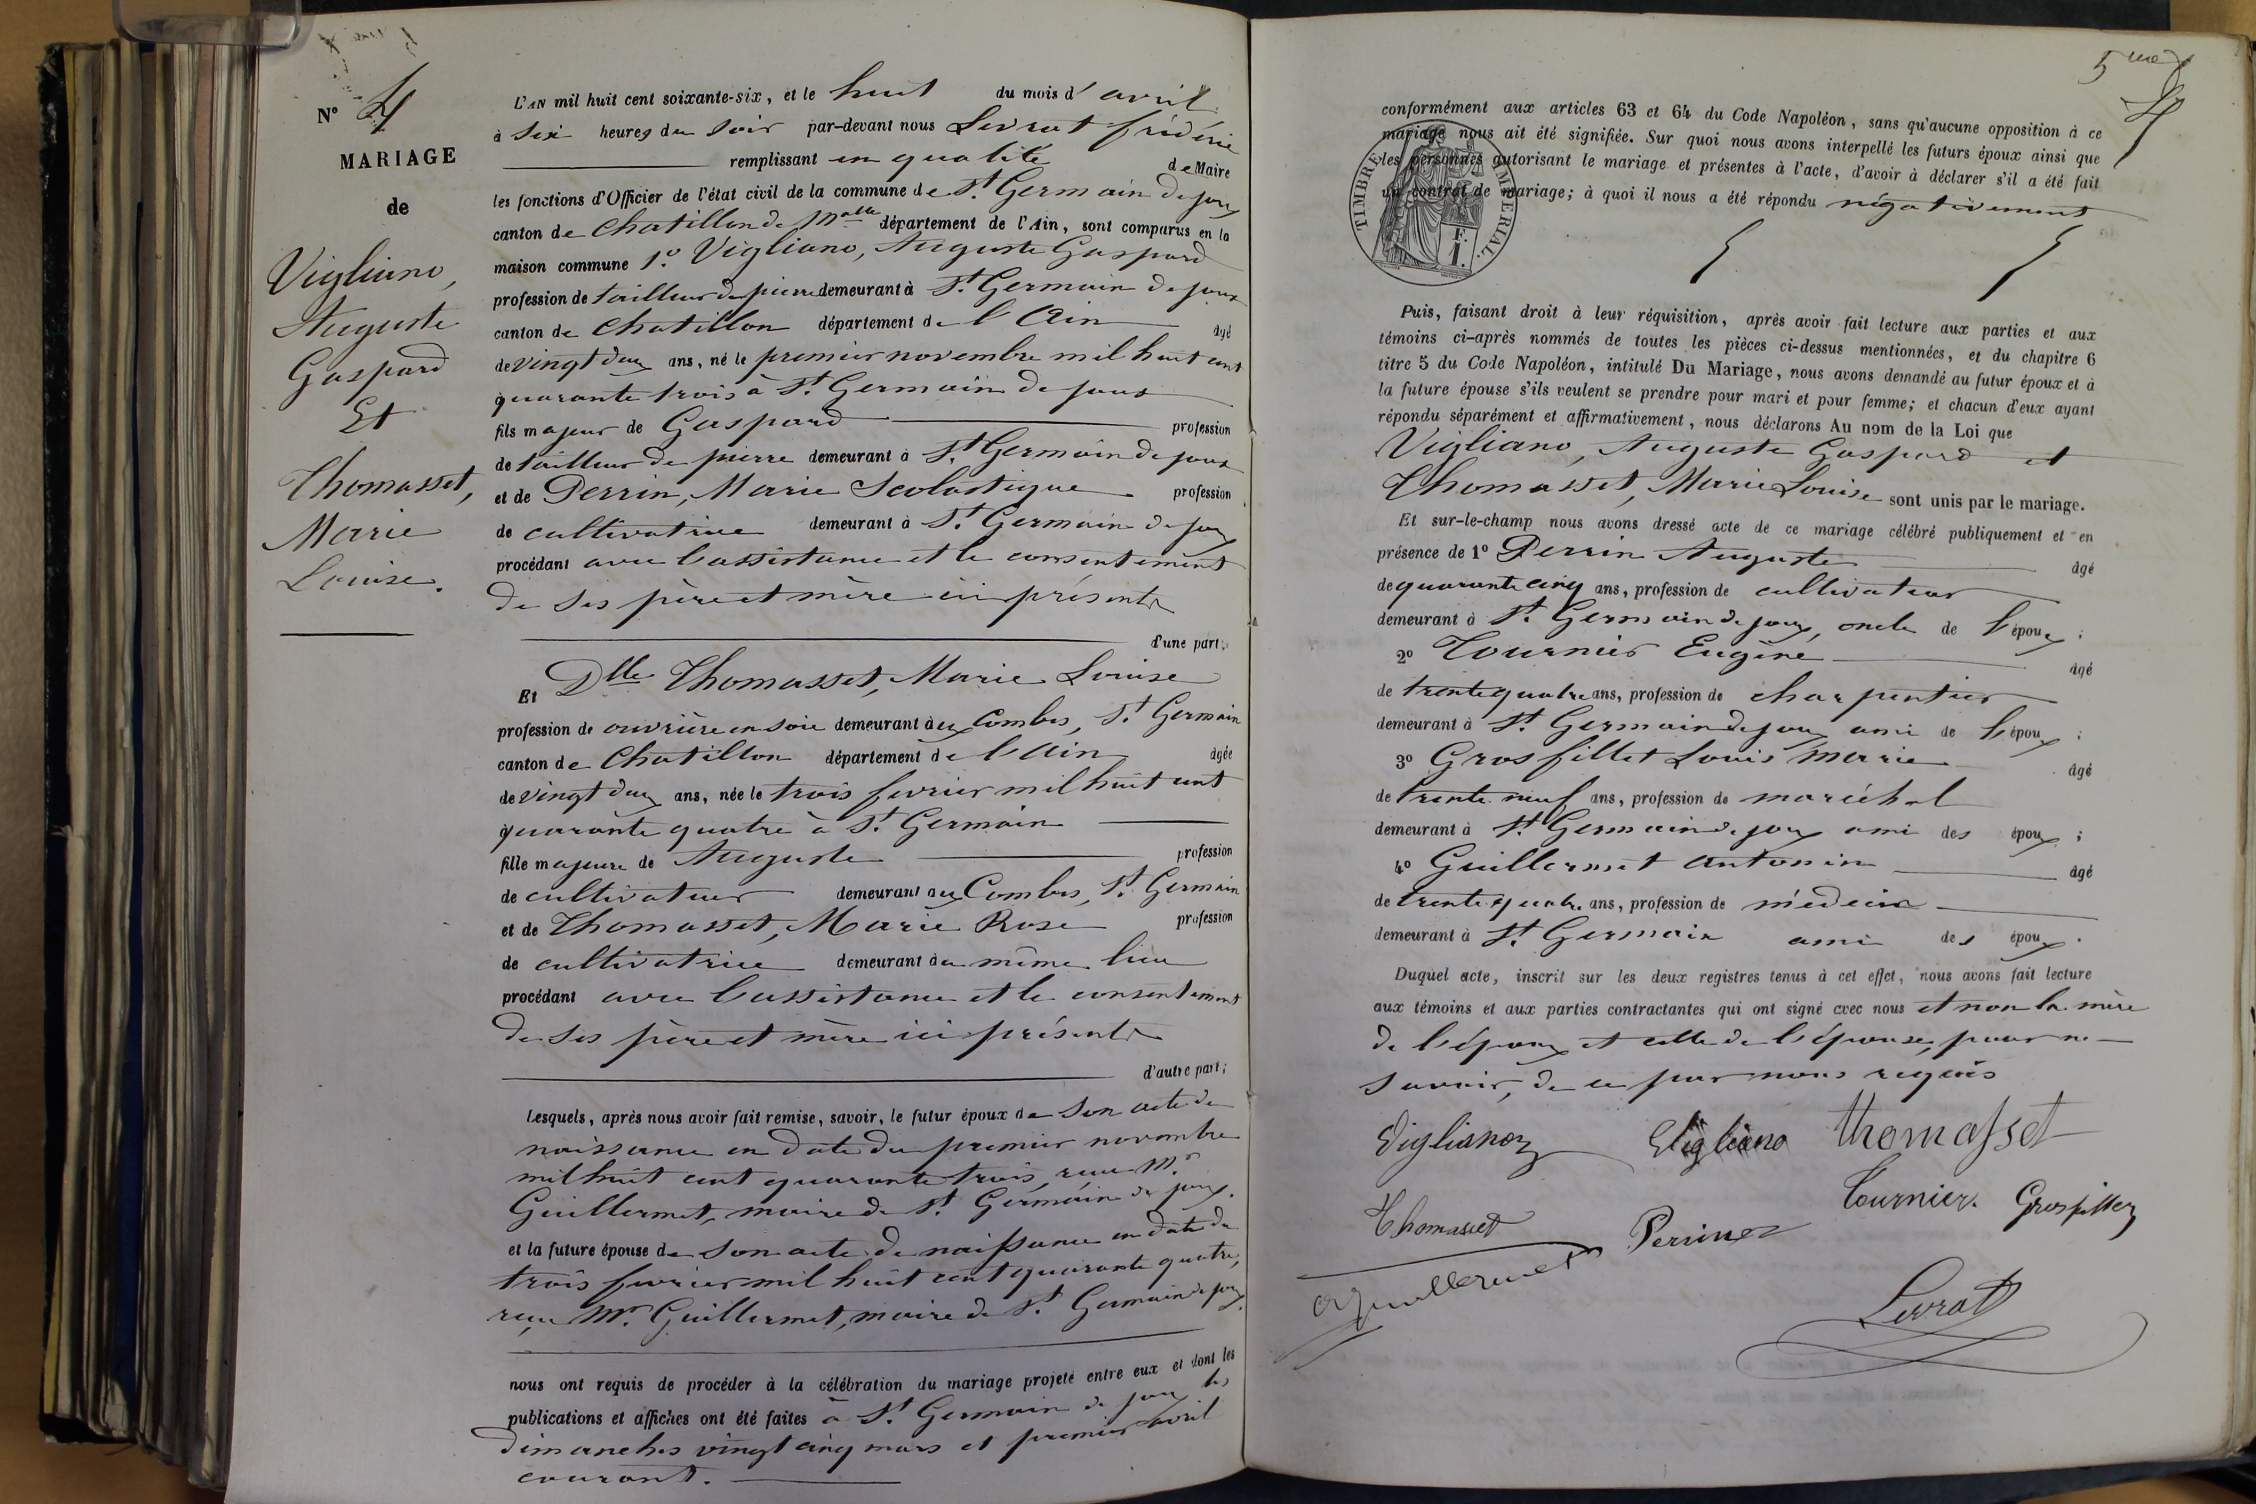 N° 4
MARIAGE
de
Vigliano,
Auguste
Gaspard
Et
Thomasset,
Marie
Louise.
L'AN mil huit cent soixante-six, et le huit du mois d'avril
à six heures du soir par-devant nous Levrat frédéric
remplissant en qualité de Maire
les fonctions d'Officier de l'état civil de la commune de St Germain de joux
canton de Chatillon de Mlle département de l'Ain, sont comparus en la
maison commune 1° Vigliano, Auguste Gaspard
profession de tailleur de pierre demeurant à St Germain de joux
canton de Chatillon département de l'Ain âgé
de vingt deux ans, né le premier novembre mil huit cent
quarante trois à St Germain de joux
fils majeur de Gaspard profession
de tailleur de pierre demeurant à St Germain de joux
et de Perrin, Marie Scolastique profession
de cultivatrice demeurant à St Germain de joux
procédant avec l'assistance et le consentement
de ses père et mère ici présents
d'une part;
Et Dlle Thomasset, Marie Louise
profession de ouvrière en soie demeurant aux Combes, St Germain
canton de Chatillon département de l'Ain âgée
de vingt deux ans, née le trois fevrier mil huit cent
quarante quatre à St Germain
fille majeure de Auguste profession
de cultivateur demeurant aux Combes, St Germain
et de Thomasset, Marie Rose profession
de cultivatrice demeurant au même lieu
procédant avec l'assistance et le consentement
de ses père et mère ici présents
d'autre part;
Lesquels, après nous avoir fait remise, savoir, le futur époux de son acte de
naissance en date du premier novembre
mil huit cent quarante trois, reçu Mr
Guillermet, maire de St Germain de joux.
et la future épouse de son acte de naissance en date du
trois fevrier mil huit cent quarante quatre,
reçu Mr. Guillermet, maire de St Germain de joux.
nous ont requis de procéder à la célébration du mariage projeté entre eux et dont les
publications et affiches ont été faites à St Germain de joux les
dimanches vingt cinq mars et premier avril
courant.
5me
conformément aux articles 63 et 64 du Code Napoléon, sans qu'aucune opposition à ce
mariage nous ait été signifiée. Sur quoi nous avons interpellé les futurs époux ainsi que
les personnes autorisant le mariage et présentes à l'acte, d'avoir à déclarer s'il a été fait
un contrat de mariage; à quoi il nous a été répondu négativement
TIMBRE IMPERIAL.
F.
1.
Puis, faisant droit à leur réquisition, après avoir fait lecture aux parties et aux
témoins ci-après nommés de toutes les pièces ci-dessus mentionnées, et du chapitre 6
titre 5 du Code Napoléon, intitulé Du Mariage, nous avons demandé au futur époux et à
la future épouse s'ils veulent se prendre pour mari et pour femme; et chacun d'eux ayant
répondu séparément et affirmativement, nous déclarons Au nom de la Loi que
Vigliano, Auguste Gaspard et
Thomasset, Marie Louise sont unis par le mariage.
Et sur-le-champ nous avons dressé acte de ce mariage célébré publiquement et en
présence de 1° Perrin Auguste âgé
de quarante cinq ans, profession de cultivateur
demeurant à St Germain de joux, oncle de l'époux;
2° Tournier Eugène âgé
de trente quatre ans, profession de charpentier
demeurant à St Germain de joux ami de l'époux;
3° Grosfillet Louis Marie âgé
de trente neuf ans, profession de maréchal
demeurant à St Germain de joux ami des époux;
4° Guillermet Antonin âgé
de trente quatre ans, profession de médecin
demeurant à St Germain ami des époux.
Duquel acte, inscrit sur les deux registres tenus à cet effet, nous avons fait lecture
aux témoins et aux parties contractantes qui ont signé avec nous et non la mère
de l'époux et celle de l'épouse, pour ne
savoir, de ce par nous requis
Vigliano Vigliano thomasset
Thomasset Perrin Tournier. Grosfillet
Guillermet
Levrat